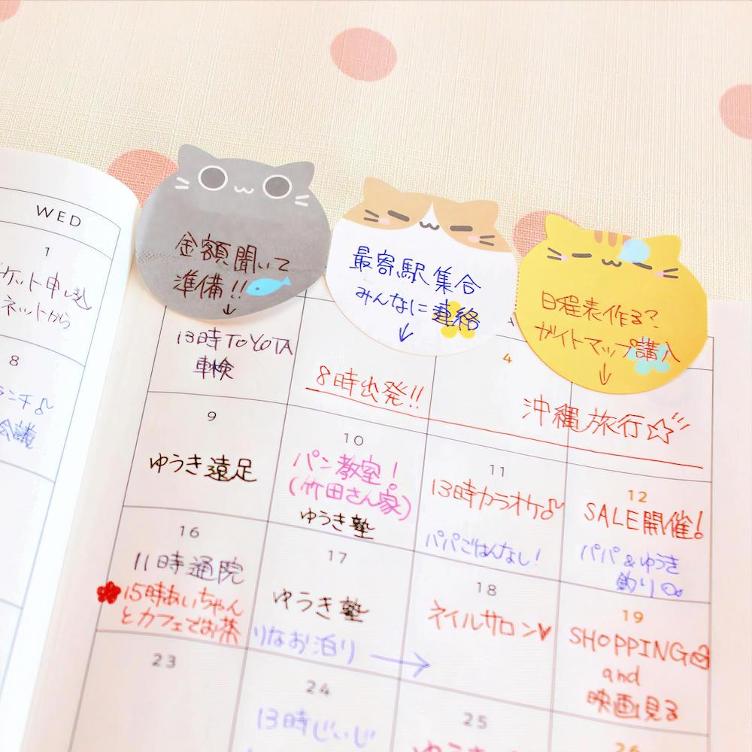 WED
1
ケット申し込
ネットから
8
ンチ♪
会議
金額聞いて
準備!!
↓
最寄駅集合
みんなに連絡
↓
日程表作る?
ガイドマップ購入
↓
13時TOYOTA
車検
8時出発!!
4
沖縄旅行☆
9
ゆうき遠足
10
パン教室!
(竹田さん家)
ゆうき塾
11
13時カラオケ♪
パパごはんなし!
12
SALE開催!
パパ&ゆうき
釣り
16
11時通院
15時あいちゃん
とカフェでお茶
17
ゆうき塾
りなお泊り →
18
ネイルサロン♥
19
SHOPPING
and
映画見る
23
24
13時じぃじ
25